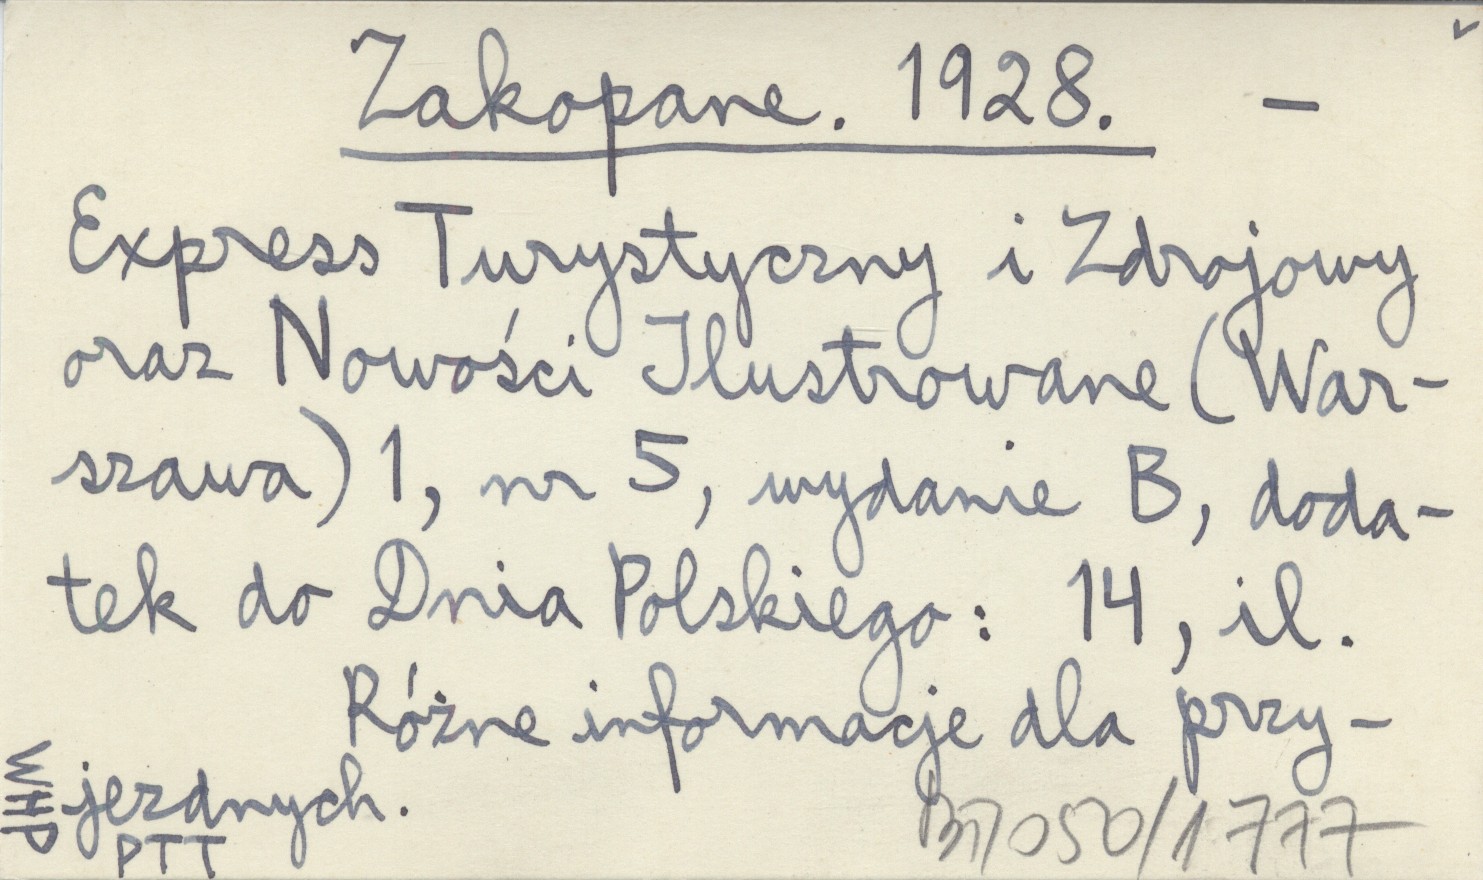 Zakopane. 1928. –
Express Turystyczny i Zdrojowy
oraz Nowości Ilustrowane (War-
szawa) 1, nr 5, wydanie B, doda-
tek do Dnia Polskiego: 14, il.
Różne informacje dla przy-
jezdnych.
WHP
PTT
050/1777